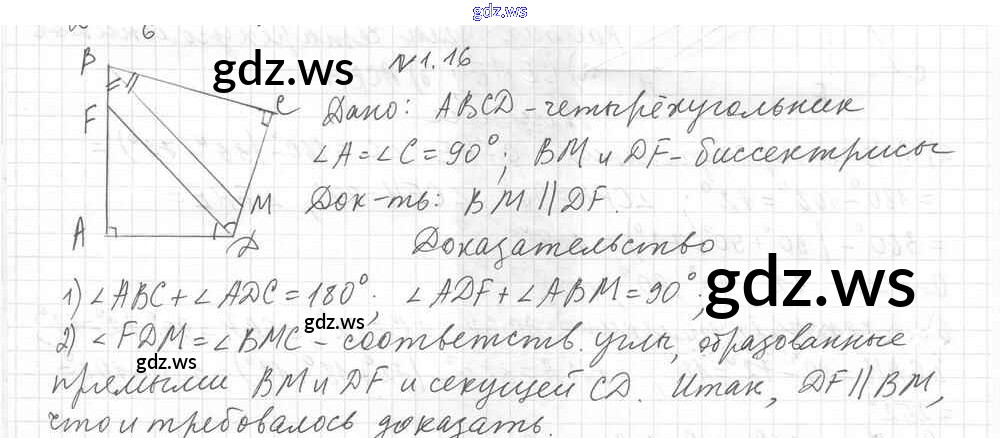 gdz.ws
6
gdz.ws
N 1.16
B
F
C
M
A
D
Дано: ABCD - четырёхугольник
∠A = ∠C = 90°; BM и DF - биссектрисы
Док-ть: BM || DF.
Доказательство
1) ∠ABC + ∠ADC = 180°; ∠ADF + ∠ABM = 90°;
gdz.ws
gdz.ws
2) ∠FDM = ∠BMC - соответств. углы, образованные
gdz.ws
прямыми BM и DF и секущей CD. Итак, DF || BM,
что и требовалось доказать.